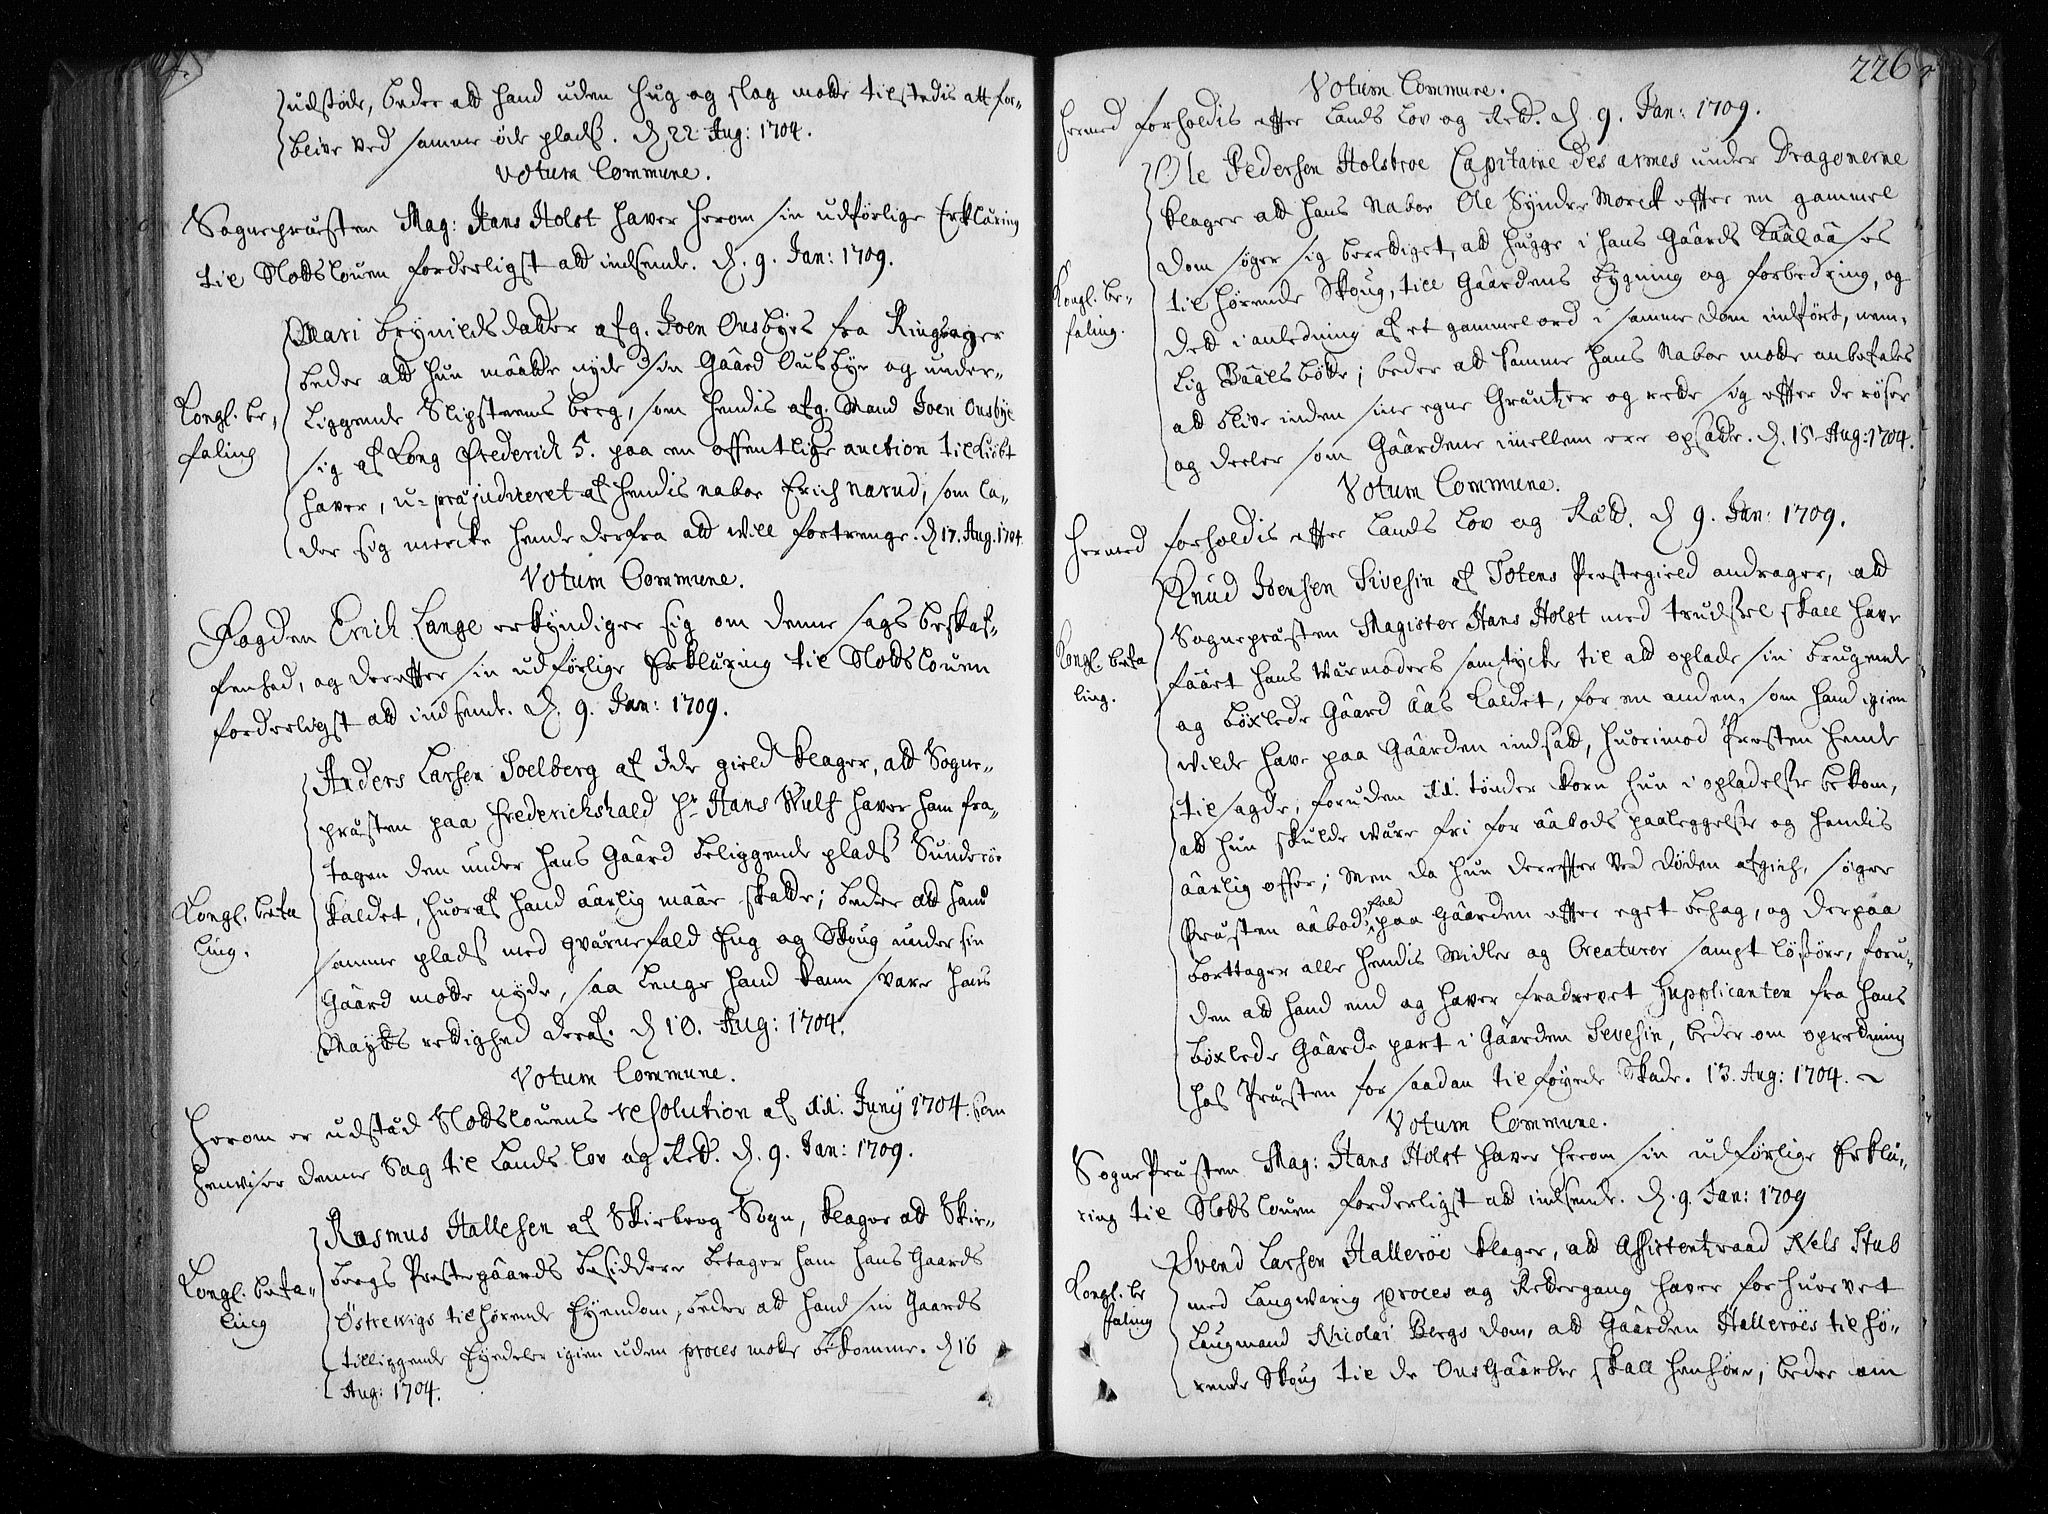 udstøde, beder att hand uden hug og slag motte tilstedis att for-
blive ved samme øde plads. d. 22 Aug: 1704.
Votum Commune.
Sognepræsten Mag: Hans Holst haver herom sin udførlige Erklæring
til Slodsloven forderligst att indsende. d. 9. Jan: 1709.
Kongl. be-
faling
Mari Brynilds datter afg. Joen Ousbyes fra Ringsager
beder att hun maatte nyde sin Gaard Ousbye og under-
liggende Slipsteens berg, som hendis afg. Mand Joen Ousbye
sig af Kong Frederich 3. paa en offentlige auction tilkiøbt
haver, u-præjudiceret af hendis naboe Erich Narud, som la-
der sig mercke hende derfra att will fortrenge. d 17. Aug. 1704
Votum Commune.
Fogden Erich Lange erkyndiger sig om denne sags beskaf-
fenhed, og derefter sin udførlige Erklæring til Slodsloven
forderligst att indsende. d. 9. Jan: 1709.
Kongl. befa
ling.
Anders Larsen Soelberg af Ide gield klager, att Sogne-
præsten paa Frederichshald Hr Hans Wulf haver ham fra-
tagen den under hans Gaard beliggende plads Sunderøe
kaldet, huoraf hand aarlig maae skatte; beder att hand
samme plads med qværnefald Eng og Skoug under sin
Gaard motte nyde, saa lenge hand kann svare hans
Maytts rettighed deraf. d 10. Aug: 1704.
Votum Commune.
Herom er udstæd Slodslovens resolution af 11. Junij 1704. som
henviser denne Sag til Lands Lov og Rett. d. 9. Jan: 1709.
Kongl. befa-
ling
Rasmus Hallesen af Skiberg Sogn, klager att Skie-
bergs Prestegaards besiddere betager ham hans Gaards
Østrewigs tilhørende Eyendom, beder att hand sin Gaards
tilliggende Eyedeler igien uden proces motte bekomme. d 16
Aug: 1704.
226
Votum Commune.
Hermed forholdis efter Lands Lov og Rett. d. 9. Jan: 1709.
Kongl. be-
faling.
Ole Pedersen Holstroe Capitaine des armes under Dragonerne
klager att hans Naboe Ole Syndre Morck efter en gammel
dom søger sig berettiget, att hugge i hans Gaards Kaalaases
tilhørende Skoug, till Gaardens bygning og forbedring, og
dett i anledning af et gammel ord i samme dom indført, nem-
lig Baalsbøtte; beder att samme hans Naboe motte anbefales
att blive inden sine egne Græntzer og rette sig efter de røser
og deeler som Gaardene imellem ere opsatte. d. 15 Aug: 1704.
Votum Commune.
Hermed forholdis efter Lands Lov og Rætt. d 9. Jan: 1709.
Kongl. befa
ling.
Knud Joensen Sivesin af Totens Prestegield andrager, att
Sognepræsten Magister Hans Holst med trudsel skall have
faaet hans Wærmoders samtycke til att oplade sin brugende
og bøxlede Gaard Aas kaldet, for en anden, som hand igien
wilde have paa Gaarden indsatt, huorimod Præsten hende
tilsagde, foruden 11. tønder korn hun i opladelse bekom,
att hun skulde være fri for aabods paaleggelse og hendis
aarlig offer; Men da hun derefter ved døden afgich, søger
Præsten aabods fald paa Gaarden efter eget behag, og derpaa
borttager alle hendis Midler og Creaturer sampt løsøre, foru-
den att hand end og haver fradrevet Supplicanten fra hans
bøxlede Gaarde part i Gaarden Sevesin, beder om opretning
hos Præsten for saadan tilføyede Skade. 13. Aug: 1704.
Votum Commune.
SognePræsten Mag: Hans Holst haver herom sin udførlige Erklæ-
ring til Slodsloven forderligst att indsende. d. 9. Jan: 1709
Kongl. be
faling
Svend Larsen Hallerøe klager, att Assistentzraad Niels Stub
med langvarig proces og Rettergang haver forhuervet
Laugmand Nicolai Bergs dom, att Gaarden Hallerøes tilhø-
rende Skoug til de Ous Gaarder skall henhøre; beder om